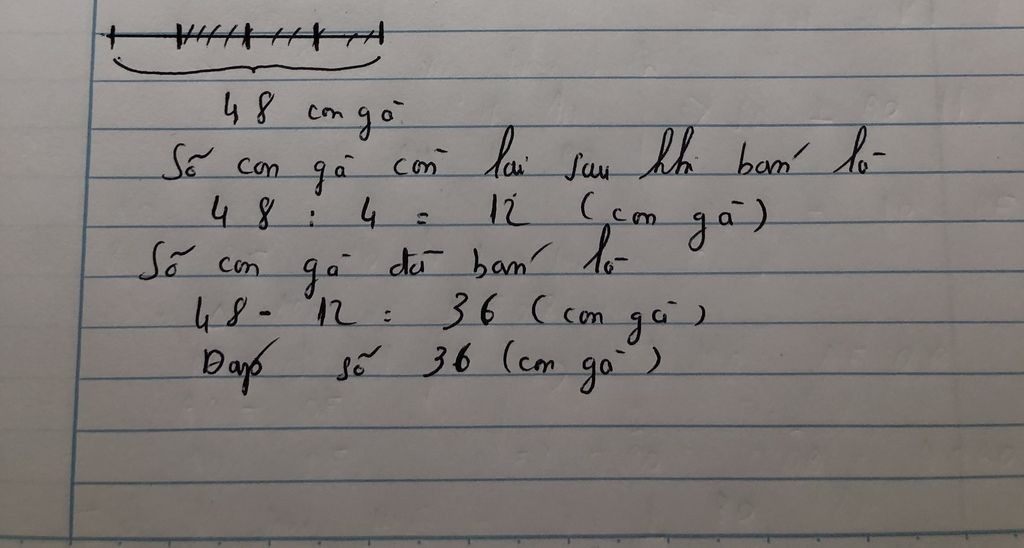 48 con gà
Số con gà còn lại sau khi bán là
48 : 4 = 12 (con gà)
Số con gà đã bán là
48 - 12 = 36 (con gà)
Đáp số 36 (con gà)